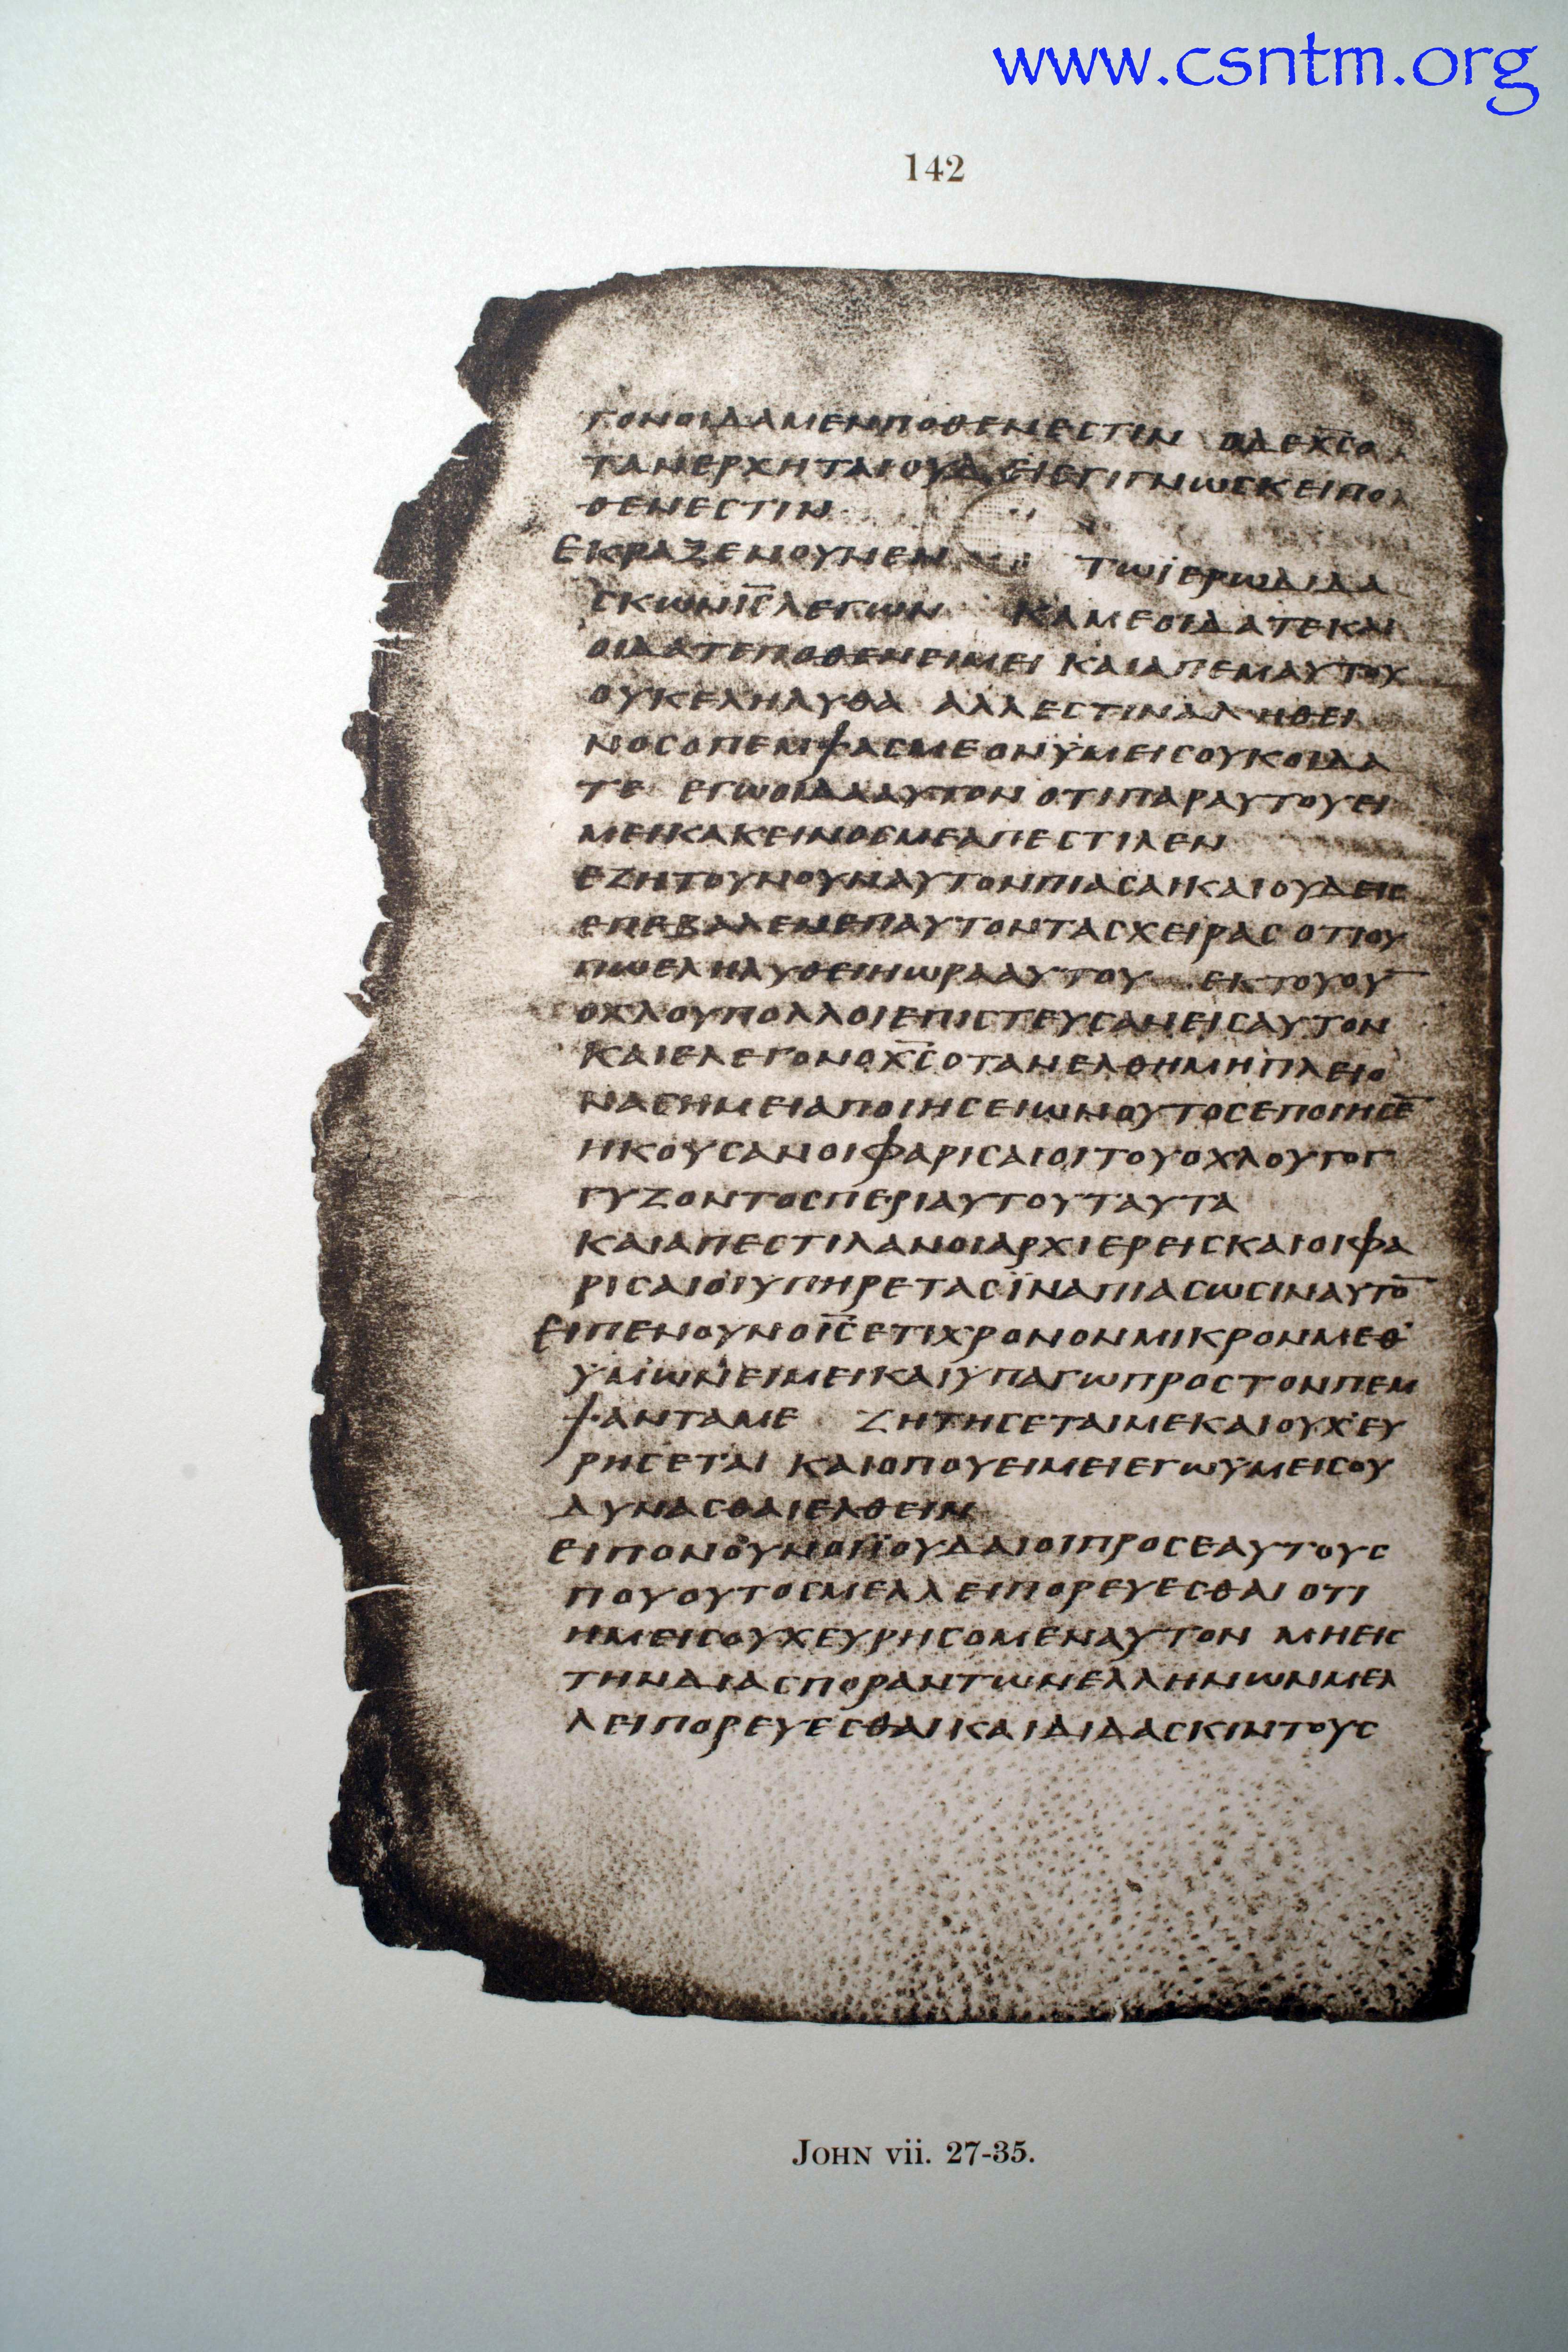 www.csntm.org
142
ΤΟΝΟΙΔΑΜΕΝΠΟΘΕΝΕCΤΙΝ ΟΔΕΧ̅C̅Ο
ΤΑΝΕΡΧΗΤΑΙΟΥΔΕΙCΓΙΓΝΩCΚΕΙΠΟ
ΘΕΝΕCΤΙΝ
ΕΚΡΑΖΕΝΟΥΝΕΝ ΤΩΪΕΡΩΔΙΔΑ
CΚΩΝΙ̅C̅ΛΕΓΩΝ ΚΑΜΕΟΙΔΑΤΕΚΑΙ
ΟΙΔΑΤΕΠΟΘΕΝΕΙΜΕΙ ΚΑΙΑΠΕΜΑΥΤΟΥ
ΟΥΚΕΛΗΛΥΘΑ ΑΛΛΕCΤΙΝΑΛΗΘΕΙ
ΝΟCΟΠΕΜΨΑCΜΕΟΝΫΜΕΙCΟΥΚΟΙΔΑ
ΤΕ ΕΓΩΟΙΔΑΑΥΤΟΝ ΟΤΙΠΑΡΑΥΤΟΥΕΙ
ΜΕΙΚΑΚΕΙΝΟCΜΕΑΠΕCΤΙΛΕΝ
ΕΖΗΤΟΥΝΟΥΝΑΥΤΟΝΠΙΑCΑΙΚΑΙΟΥΔΕΙC
ΕΠΕΒΑΛΕΝΕΠΑΥΤΟΝΤΑCΧΕΙΡΑC ΟΤΙΟΥ
ΠΩΕΛΗΛΥΘΕΙΗΩΡΑΑΥΤΟΥ ΕΚΤΟΥΟΥ̅
ΟΧΛΟΥΠΟΛΛΟΙΕΠΙCΤΕΥCΑΝΕΙCΑΥΤΟΝ
ΚΑΙΕΛΕΓΟΝΟΧ̅C̅ΟΤΑΝΕΛΘΗΜΗΠΛΕΙΟ
ΝΑCΗΜΕΙΑΠΟΙΗCΕΙΩΝΟΥΤΟCΕΠΟΙΗCΕ̅
ΗΚΟΥCΑΝΟΙΦΑΡΙCΑΙΟΙΤΟΥΟΧΛΟΥΓΟΓ
ΓΥΖΟΝΤΟCΠΕΡΙΑΥΤΟΥΤΑΥΤΑ
ΚΑΙΑΠΕCΤΙΛΑΝΟΙΑΡΧΙΕΡΕΙCΚΑΙΟΙΦΑ
ΡΙCΑΙΟΙΥΠΗΡΕΤΑCΪΝΑΠΙΑCΩCΙΝΑΥΤΟ̅
ΕΙΠΕΝΟΥΝΟΙ̅C̅ΕΤΙΧΡΟΝΟΝΜΙΚΡΟΝΜΕΘ
ΫΜΩΝΕΙΜΕΙΚΑΙΥΠΑΓΩΠΡΟCΤΟΝΠΕΜ
ΨΑΝΤΑΜΕ ΖΗΤΗCΕΤΑΙΜΕΚΑΙΟΥΧΕΥ
ΡΗCΕΤΑΙ ΚΑΙΟΠΟΥΕΙΜΕΙΕΓΩΫΜΕΙCΟΥ
ΔΥΝΑCΘΑΙΕΛΘΕΙΝ
ΕΙΠΟΝΟΥΝΟΙΪΟΥΔΑΙΟΙΠΡΟCΕΑΥΤΟΥC
ΠΟΥΟΥΤΟCΜΕΛΛΕΙΠΟΡΕΥΕCΘΑΙ ΟΤΙ
ΗΜΕΙCΟΥΧΕΥΡΗCΟΜΕΝΑΥΤΟΝ ΜΗΕΙC
ΤΗΝΔΙΑCΠΟΡΑΝΤΩΝΕΛΛΗΝΩΝΜΕΛ
ΛΕΙΠΟΡΕΥΕCΘΑΙΚΑΙΔΙΔΑCΚΙΝΤΟΥC
JOHN vii. 27-35.